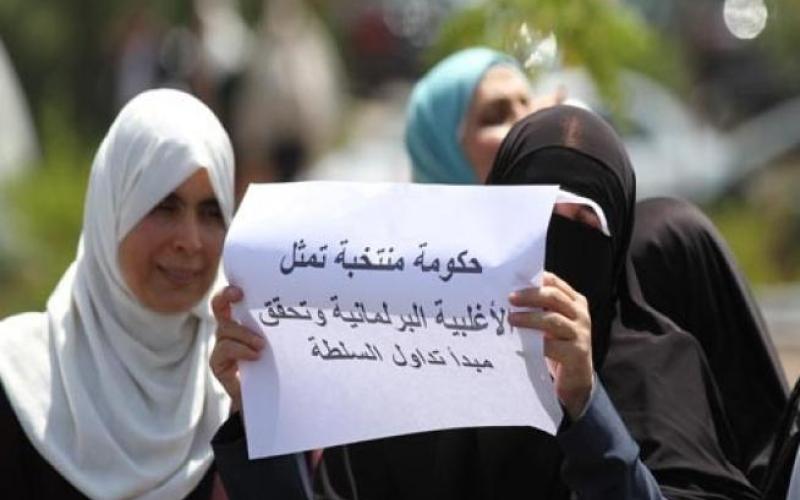 حكومة منتخبة تمثل
الأغلبية البرلمانية وتحقق
مبدأ تداول السلطة